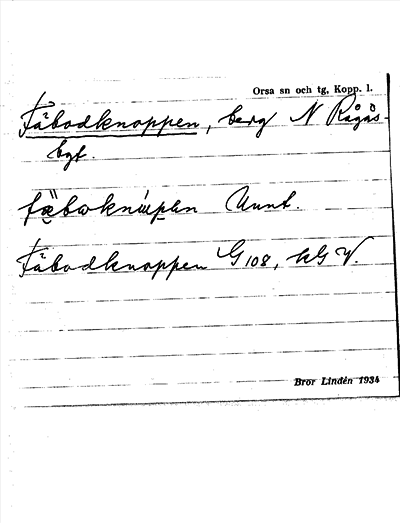 Orsa sn och tg, Kopp. l.
Fäbodknoppen, berg N Rågås-
bgt.
Uunt.
Fäbodknoppen G 108, kG V.
Bror Lindén 1934